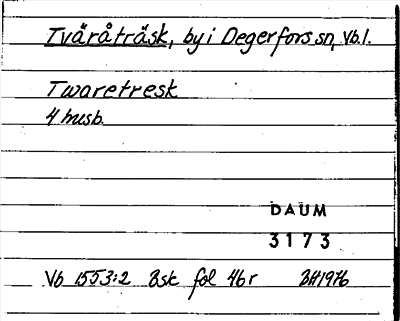 Tväråträsk, by i Degerfors sn, Vb.l.
Twaretresk
4 husb.
DAUM
3173
Vb 1553:2 Bsk fol 46r BH1976